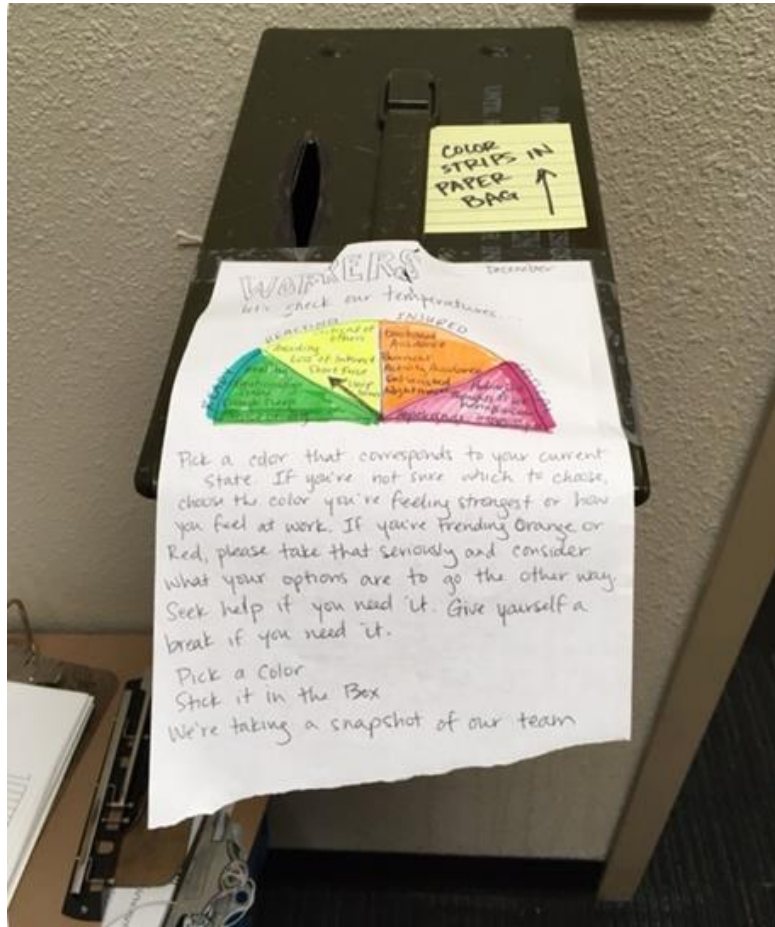 COLOR
STRIPS IN
PAPER
BAG
WORKERS
December
let's check our temperatures...
REACTING
INJURED
others
Loss of Interest
Short Fuse
Avoidance
Burnout
Activity Avoidance
Nightmares
Pick a color that corresponds to your current
State. If you're not sure which to choose,
choose the color you're feeling strongest or how
you feel at work. If you're trending Orange or
Red, please take that seriously and consider
what your options are to go the other way.
Seek help if you need it. Give yourself a
break if you need it.
Pick a Color
Stick it in the Box
We're taking a snapshot of our team